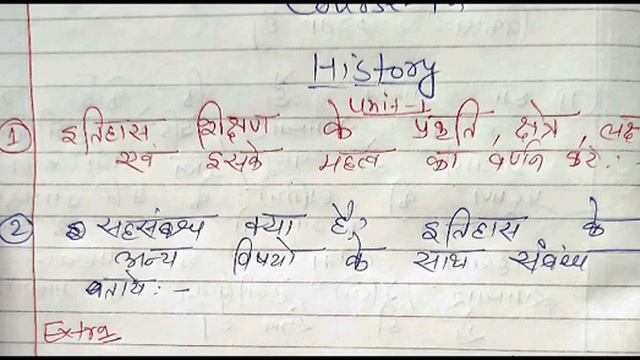 History
Unit-1
1 इतिहास शिक्षण के प्रकृति, क्षेत्र, लक्ष
एवं इसके महत्व का वर्णन करे :
2 सहसंबन्ध क्या है? इतिहास के
अन्य विषयो के साथ संबंध
बताये : -
Extra